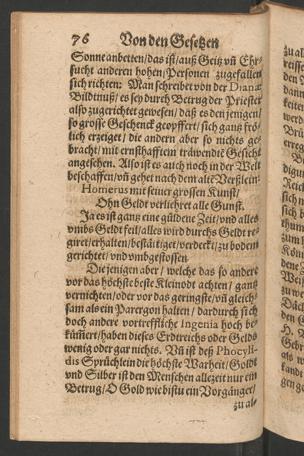 76 Von den Gesetzen
Sonne anbetten/das ist/auß Geitz vñ Ehr-
sucht anderen hohen Personen zugefallen
sich richten: Man schreibet von der Dianæ
Bildtnuß/es sey durch Betrug der Priester
also zugerichtet gewesen/daß es den jenigen/
so grosse Geschenck geopffert/sich gantz frö-
lich erzeiget/die andern aber so nichts ge-
bracht/mit ernsthafftem Gesicht
angesehen. Also ist es auch noch in der Welt
beschaffen/vñ gehet nach dem alte Verßlein:
Homerus mit seiner grossen Kunst/
Ohn Geldt verliehret alle Gunst.
Ja es ist gantz eine güldene Zeit/vnd alles
vmbs Geldt feil/alles wird durchs Geldt re-
giret/erhalten/bestätiget/verdeckt/zu bodem
gerichtet/vnd vmbgestossen.
Die jenigen aber/welche das so andere
vor das höchste beste Kleinodt achten/gantz
vernichten/oder vor das geringste/vñ gleich-
sam als ein Parergon halten/dardurch sich
doch andere vortreffliche Ingenia hoch be-
küm̃ert/haben dieses Erdtreichs oder Geldts
wenig oder gar nichts. Vñ ist deß Phocyli-
dis Sprüchlein die höchste Warheit/Goldt
vnd Silber ist den Menschen allezeit nur ein
Betrug/O Gold wie bistu ein Vorgänger/
zu al-